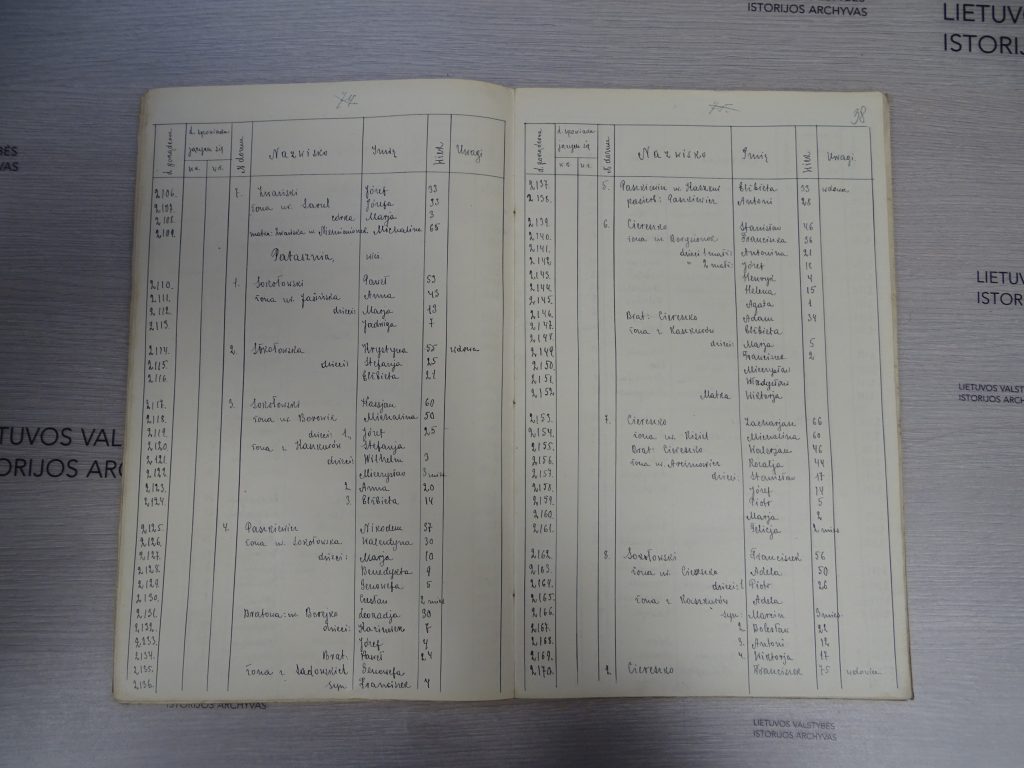 LIETUVOS VALSTYBĖS
ISTORIJOS ARCHYVAS
74
l. porządkowa
l. spowiada
jących się
v.s.
v.r.
N domu
Nazwisko
Imię
Wiek
Uwagi
2106. 7. Józef 33
2107. żona ur. Józefa 33
2108. córka Marja 3
2109. Michalina 65
Pałasznia, wieś.
2110. 1. Sokołowski Paweł 53
2111. żona ur. Jasińska Anna 43
2112. dzieci: Marja 13
2113. Jadwiga 7
2114. 2. Sokołowska Krystyna 55 wdowa
2115. dzieci: Stefanja 25
2116. Elżbieta 21
2117. 3. Sokołowski Kassjan 60
2118. żona ur. Borowik Michalina 50
2119. dzieci 1. Józef 25
2120. żona z Stefanja
2121. dzieci: Wilhelm 3
2122. Mieczysław 3 mies
2123. 2 Anna 20
2124. 3. Elżbieta 14
2125. 4. Paszkiewicz Nikodem 37
2126. żona ur. Sokołowska Walentyna 30
2127. dzieci: Marja 10
2128. Benedykta 9
2129. Genowefa 5
2130. Czesław 2 mies
2131. Bratowa: ur. Boryko Leonadja 30
2132. dzieci: Kazimierz 7
2133. Józef 4
2134. Brat. Paweł 24
2135. żona z Sadowskich Genowefa
2136. syn Franciszek 4
75
38
l. porządkowa
l. spowiada
jących się
v.s.
v.r.
N domu
Nazwisko
Imię
Wiek
Uwagi
2137. 5. Paszkiewicz Elżbieta 53 wdowa
2138. pasierb: Paszkiewicz Antoni 28
2139. 6. Cierenko Stanisław 46
2140. żona ur. Franciszka 36
2141. dzieci 1 matki: Antonina 21
2142. " 2 matki: Józef 18
2143. Henryk 4
2144. Helena 15
2145. Agata 1
2146. Brat: Cierenko Adam 34
2147. żona z Elżbieta
2148. dzieci: Marja 5
2149. Franciszek 2
2150. Mieczysław
2151. Władysław
2152. Matka Wiktorja
2153. 7. Cierenko Zacharjasz 66
2154. żona ur. Kisiel Michalina 60
2155. Brat: Cierenko Walerjan 46
2156. żona ur. Rozalja 44
2157. dzieci: Stanisław 17
2158. Józef 14
2159. Piotr 5
2160. Marja 2
2161. Felicja 2 mies
2162. 8. Sokołowski Franciszek 56
2163. żona ur. Cierenko Adela 50
2164. dzieci: 1. Piotr 26
2165. żona z Adela
2166. syn: Marcin 3 mies
2167. 2. Bolesław 22
2168. 3. Antoni 12
2169. 4. Wiktorja 17
2170. 2. Cierenko Franciszek 75 wdowiec
LIETUVOS VALSTYBĖS
ISTORIJOS ARCHYVAS